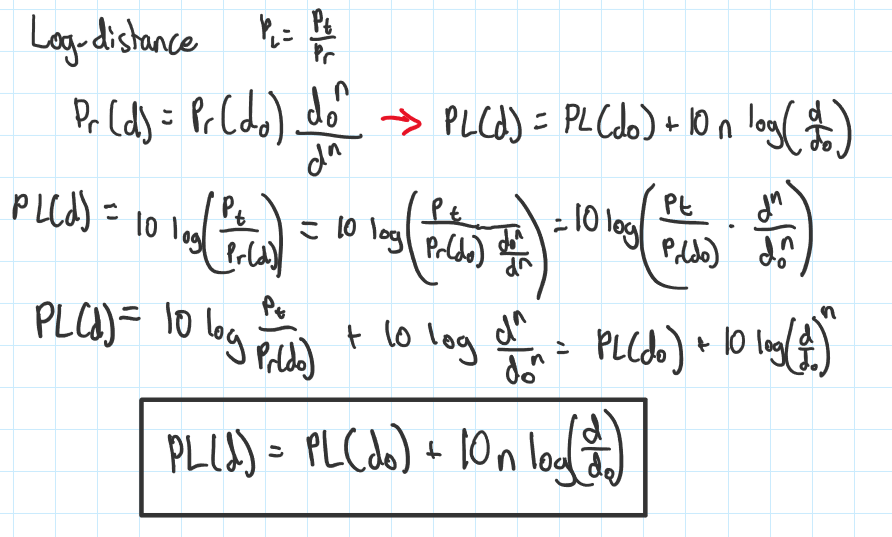 Log-distance P_L = P_t/P_r
P_r(d) = P_r(d_0) d_0^n/d^n → PL(d) = PL(d_0) + 10 n log(d/d_0)
PL(d) = 10 log(P_t/P_r(d)) = 10 log(P_t/(P_r(d_0) d_0^n/d^n)) = 10 log(P_t/P_r(d_0) · d^n/d_0^n)
PL(d) = 10 log P_t/P_r(d_0) + 10 log d^n/d_0^n = PL(d_0) + 10 log(d/d_0)^n
PL(d) = PL(d_0) + 10 n log(d/d_0)